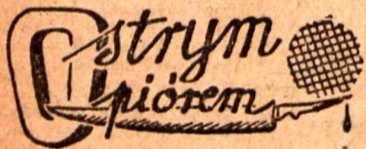 Ostrym
piórem